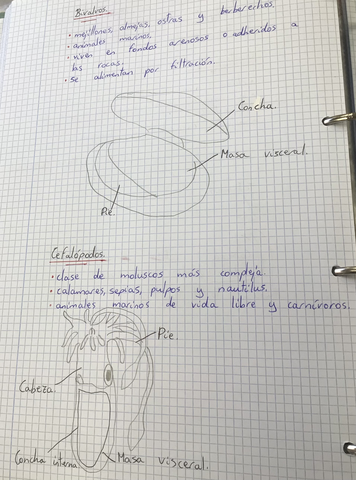 Bivalvos.
· mejillones, almejas, ostras y berberechos.
· animales marinos.
· viven en fondos arenosos o adheridos a
las rocas.
· se alimentan por filtración.
Concha.
Masa visceral.
Pie.
Cefalópodos.
· clase de moluscos más compleja.
· calamares, sepias, pulpos y nautilus.
· animales marinos de vida libre y carnívoros.
Pie
Cabeza.
Concha interna
Masa visceral.